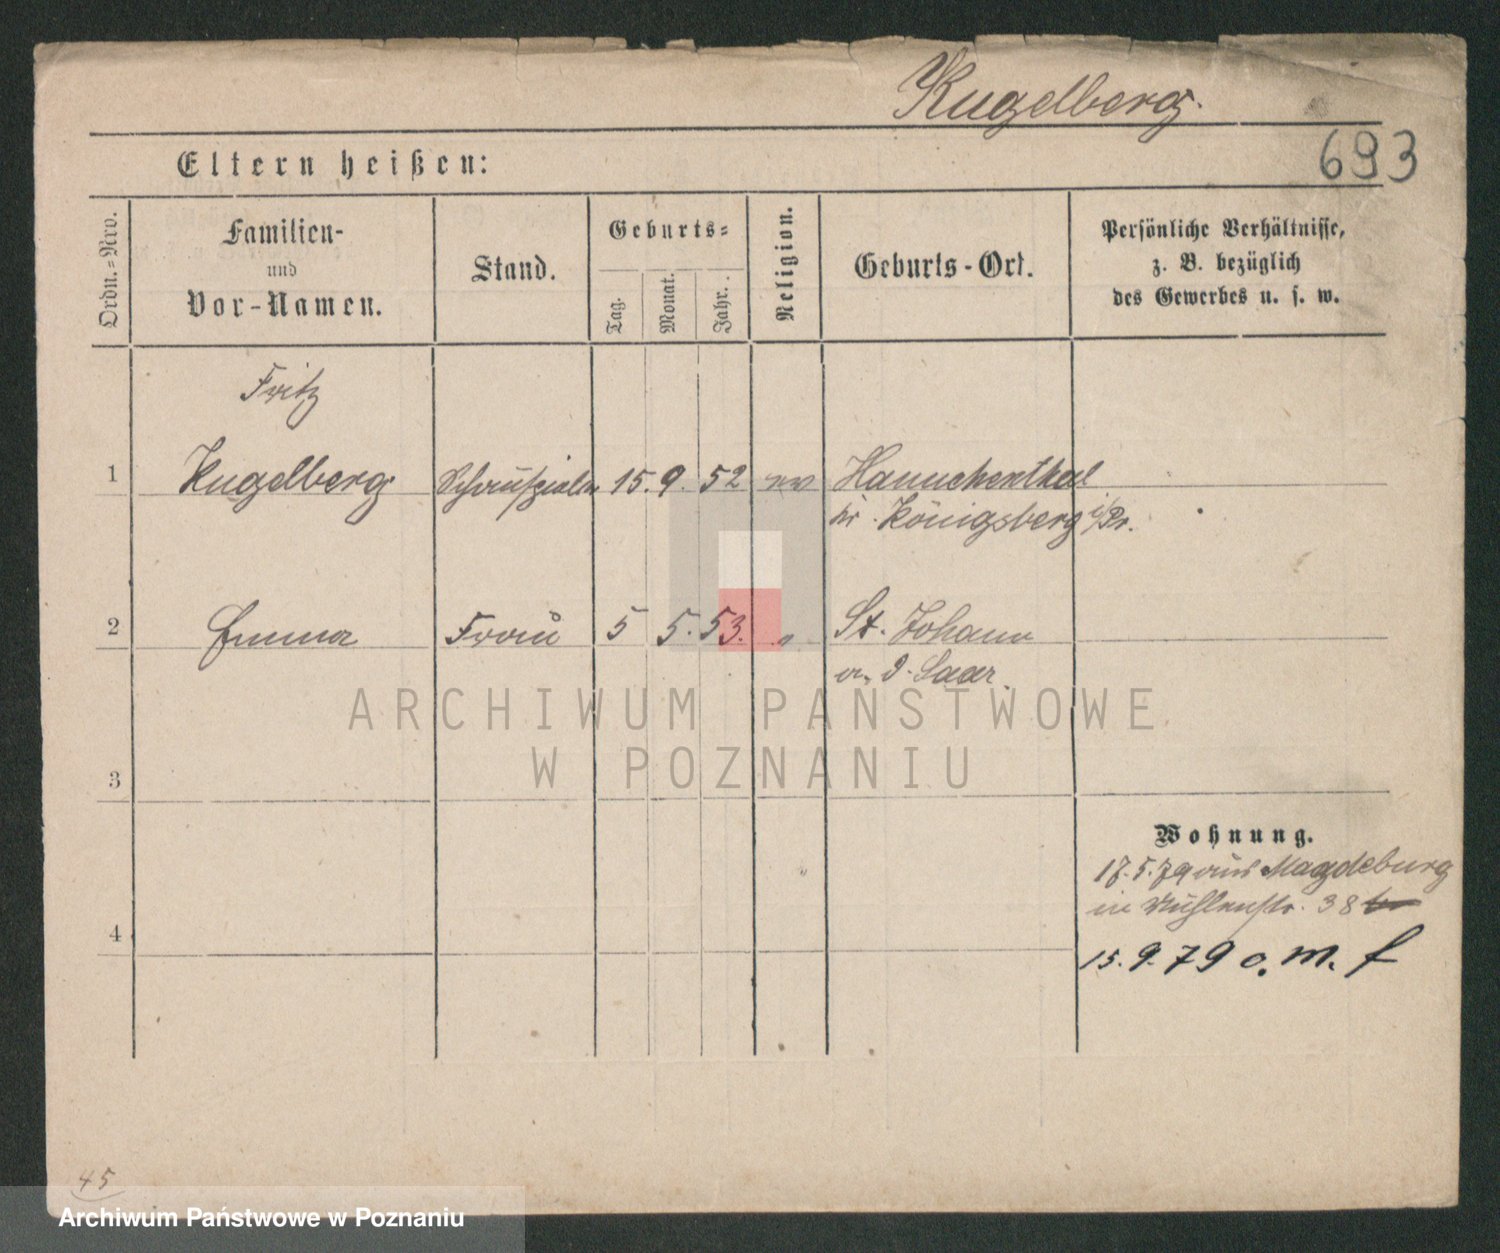 Kugelberg.
693
Eltern heißen:
Ordn.-Nro.
Familien-
und
Vor-Namen.
Stand.
Geburts-
Tag.
Monat.
Jahr.
Religion.
Geburts-Ort.
Persönliche Verhältnisse,
z. B. bezüglich
des Gewerbes u. s. w.
Fritz
1 Kugelberg Schauspieler 15. 9. 52 ev Hannchenthal
Kr. Königsberg i/Pr.
2 Emma Frau 5 5. 53. " St. Johann
a. d. Saar.
3
Wohnung.
17.5.79 aus Magdeburg
in Mühlenstr. 38
4
15. 9. 79 o. m. f
45
ARCHIWUM PAŃSTWOWE
W POZNANIU
Archiwum Państwowe w Poznaniu